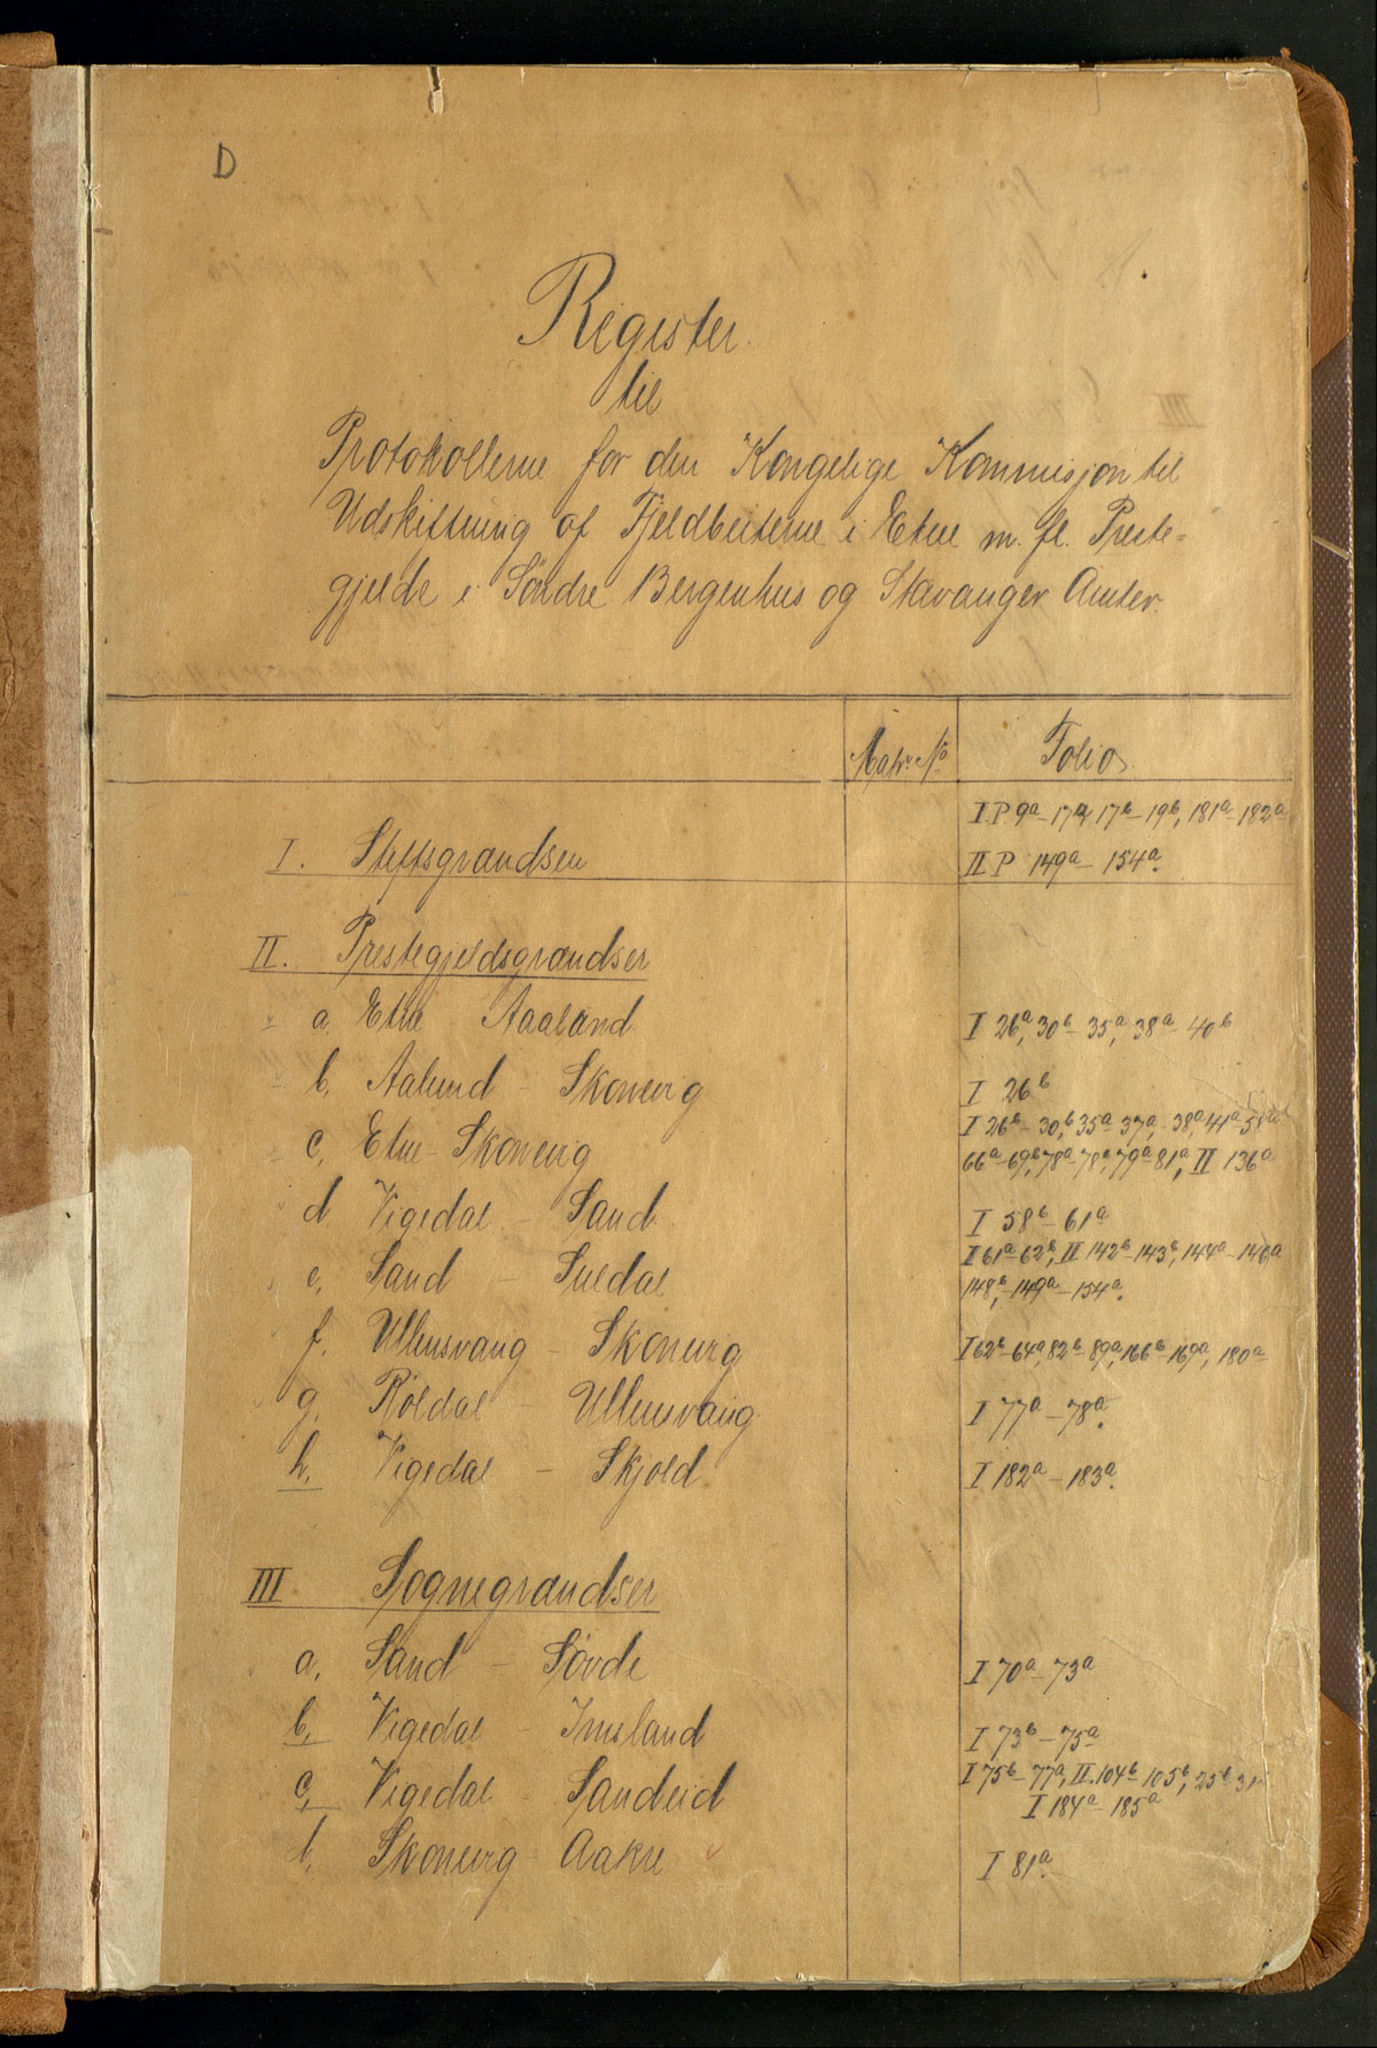 D
Register
til
Protokollerne for den Kongelige Kommisjon til
Udskiftning af Fjeldbeiterne i Etne m. fl. Preste-
gjelde i Söndre Bergenhus og Stavanger Amter.
Matr. No Folio
I P 9a - 17a, 17b - 19b, 181a - 182a
I. Stiftsgrændsen II P 149a - 154a.
II. Prestegjeldsgrændser
a, Etne - Aaland I 26a, 30b - 35a, 38a - 40b
b, Aalund - Skonevig I 26b
c, Etne - Skonevig I 26b - 30b, 35a 37a, 38a, 41a - 58a
66a - 69b, 78a - 78a, 79a - 81a, II 136a
d Vigedal - Sand I 58b - 61a
e, Sand - Suldal I 61a - 62b, II 142b - 143b, 144a - 146a
148b, 149a - 154a.
f. Ullensvang - Skonevig I 62b - 64a, 82b - 89a, 166b - 169a, 180a
g, Röldal - Ullensvang I 77a - 78a.
h, Vigedal - Skjold I 182a - 183a.
III Sognegrændser
a, Sand - Sövde I 70a - 73a
b, Vigedal - Imsland I 73b - 75a
c, Vigedal - Sandeid I 75b - 77a, II. 104b - 105b, 25b - 31
I 184a - 185a
d, Skonevig - Aakre I 81a.